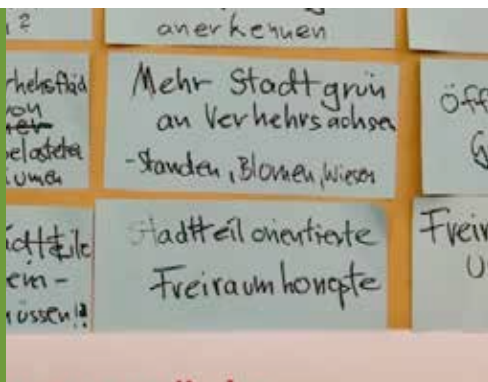 ?
anerkennen
von
Mehr Stadtgrün
an Verkehrsachsen
-Stauden, Blumen, Wiesen
öff
Stadtteilorientierte
Freiraumkonzpte
Freir
U
em-
müssen!?